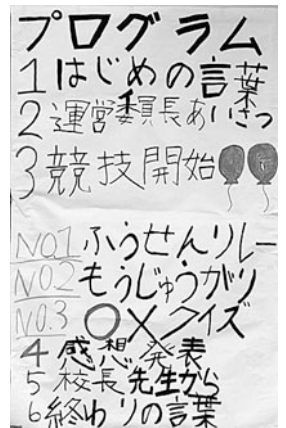 プログラム
1はじめの言葉
2運営委員長あいさつ
3競技開始
NO.1 ふうせんリレー
NO.2 もうじゅうがり
NO.3 ○×クイズ
4感想発表
5校長先生から
6終わりの言葉